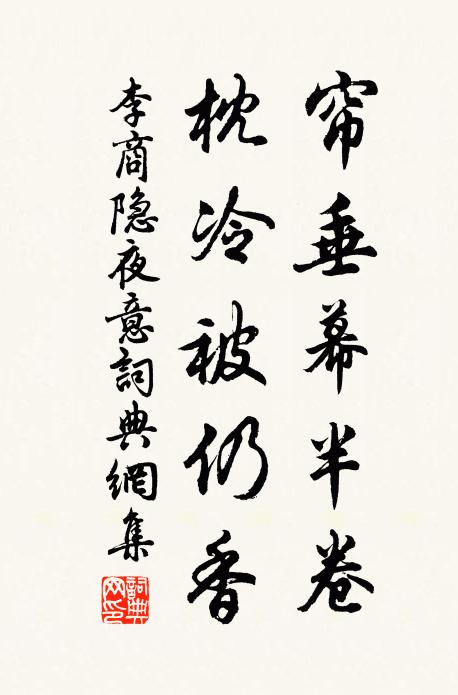 帘垂幕半卷
枕冷被仍香
李商隐夜意詞典網集
詞典網印